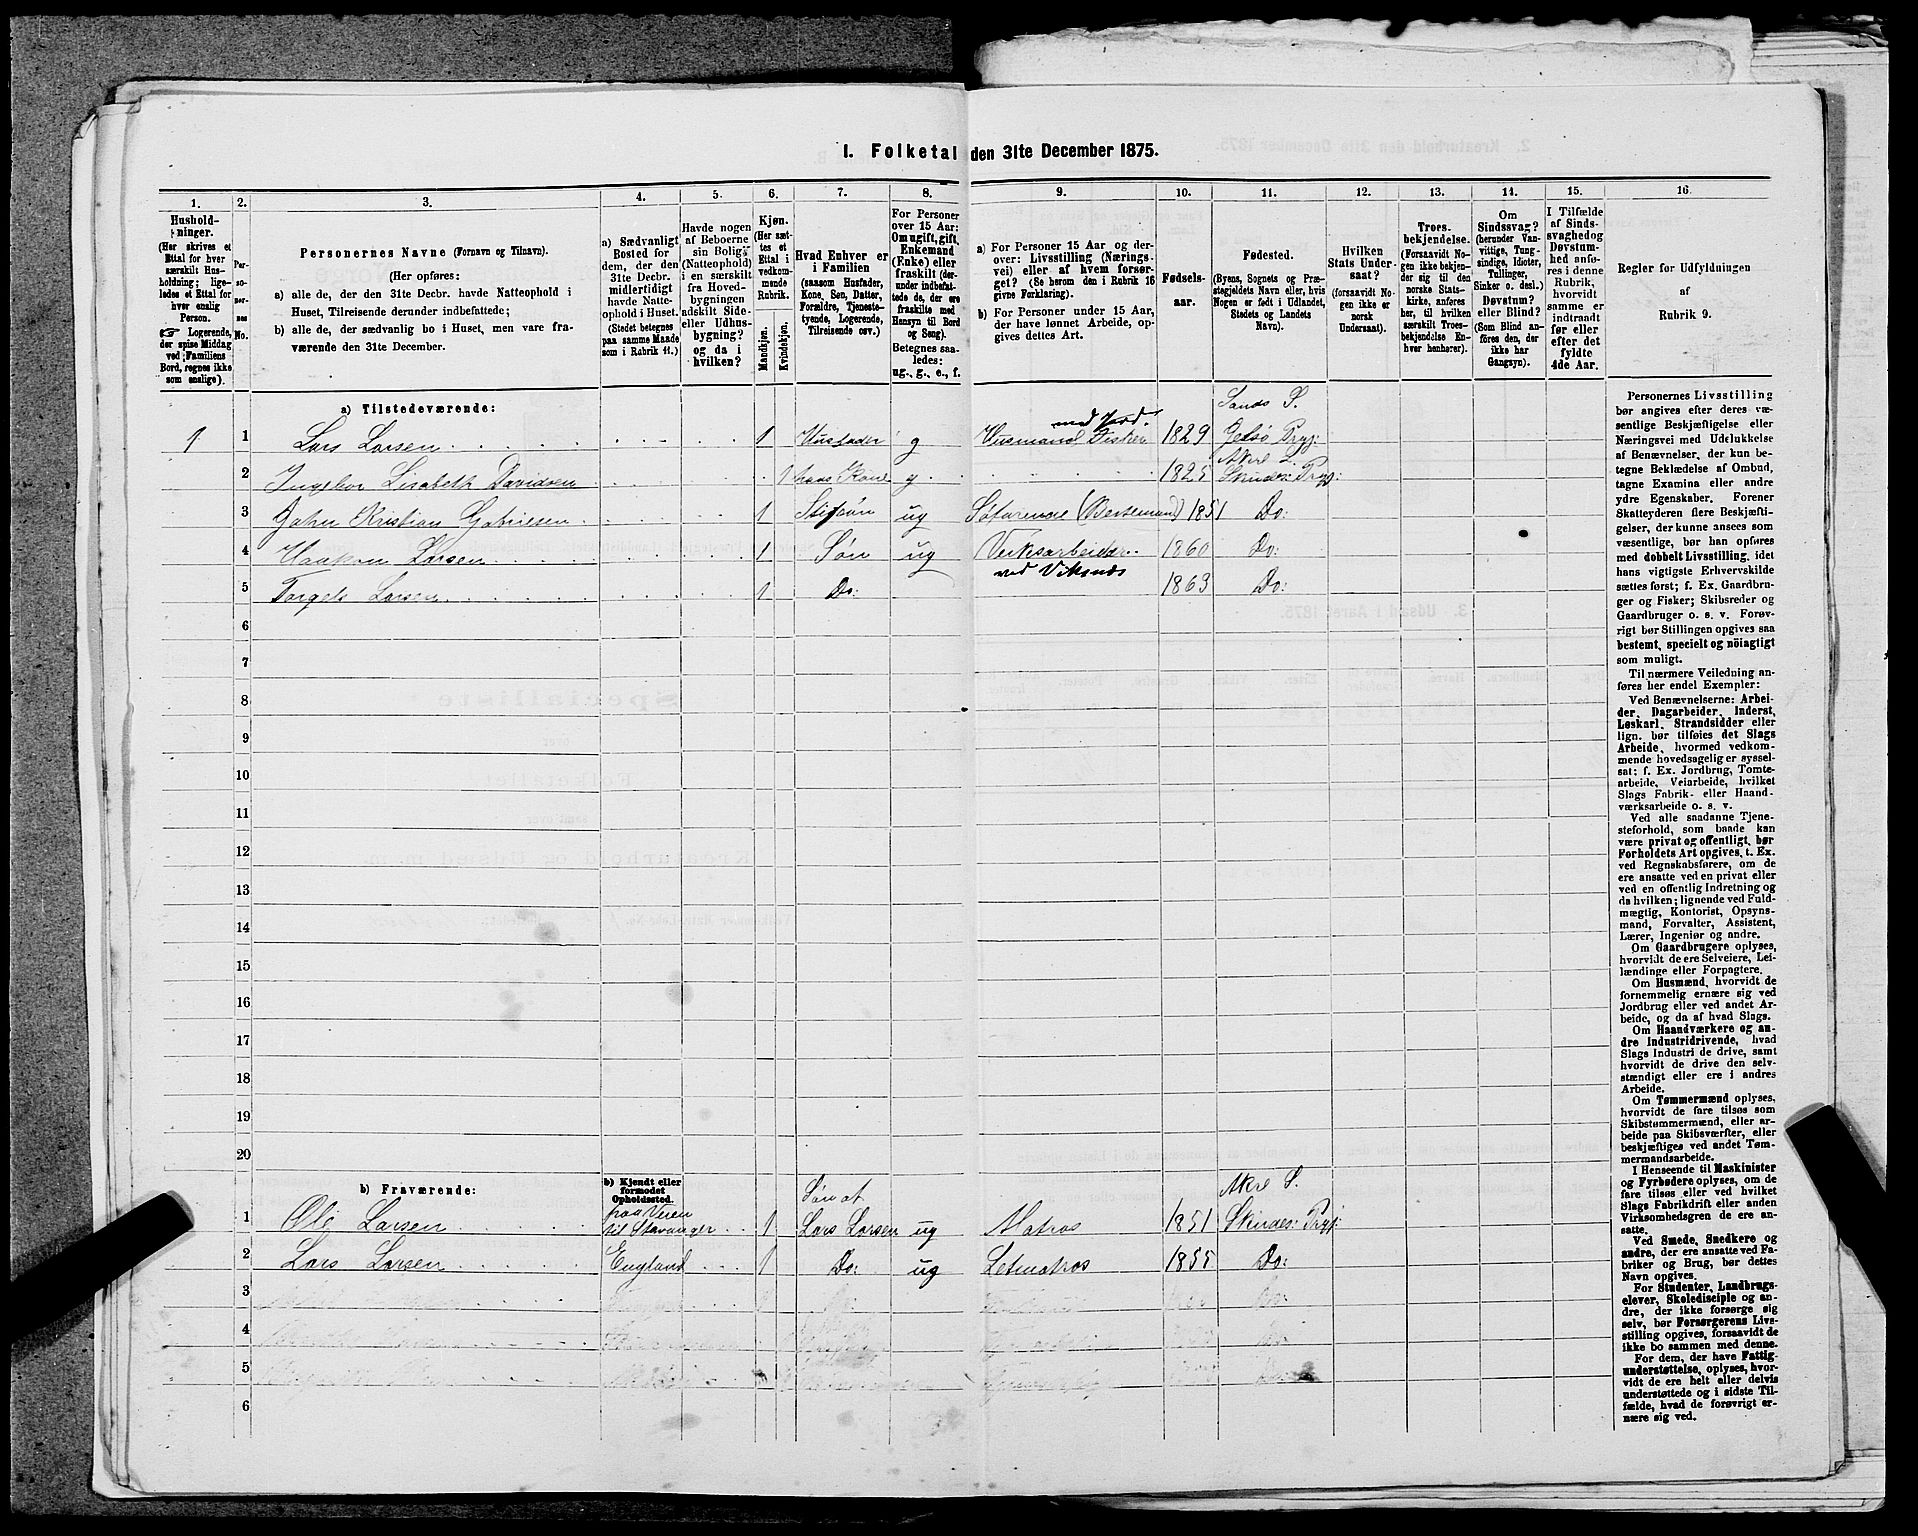 I. Folketal den 31te December 1875.
1.
2.
3.
4.
5.
6.
7.
8.
9.
10.
11.
12.
13.
14.
15.
16.
Hushold-
ninger.
(Her skrives et
Ettal for hver
særskilt Hus-
holdning; lige-
ledes et Ettal for
hver enslig
Person.
☞ Logerende,
der spise Middag
ved Familiens
Bord, regnes ikke
som enslige).
Per-
so-
ner-
nes
No.
Personernes Navne (Fornavn og Tilnavn).
(Her opføres:
a) alle de, der den 31te Decbr. havde Natteophold i
Huset, Tilreisende derunder indbefattede;
b) alle de, der sædvanlig bo i Huset, men vare fra-
værende den 31te December.
a) Sædvanligt
Bosted for
dem, der den
31te Decbr.
midlertidigt
havde Natte-
ophold i Huset.
(Stedet betegnes
paa samme Maade
som i Rubrik 11.)
Havde nogen
af Beboerne
sin Bolig
(Natteophold)
i en særskilt
fra Hoved-
bygningen
adskilt Side-
eller Udhus-
bygning?
og da i
hvilken?
Kjøn.
(Her sæt-
tes et
Ettal i
vedkom-
mende
Rubrik.
Mandkjøn.
Kvindekjøn.
Hvad Enhver er
i Familien
(saasom Husfader,
Kone, Søn, Datter,
Forældre, Tjeneste-
tyende, Logerende,
Tilreisende osv.)
For Personer
over 15 Aar:
Om ugift, gift,
Enkemand
(Enke) eller
fraskilt (der-
under indbefat-
tede de, der ere
fraskilte med
Hensyn til Bord
og Seng).
Betegnes saa-
ledes:
ug., g., e., f.
a) For Personer 15 Aar og der-
over: Livsstilling (Nærings-
vei) eller af hvem forsør-
get? (Se herom den i Rubrik 16
givne Forklaring).
b) For Personer under 15 Aar,
der have lønnet Arbeide, op-
gives dettes Art.
Fødsels-
aar.
Fødested.
(Byens, Sognets og Præ-
stegjeldets Navn eller, hvis
Nogen er født i Udlandet,
Stedets og Landets
Navn).
Hvilken
Stats Under-
saat?
(forsaavidt No-
gen ikke er
norsk
Undersaat).
Troes-
bekjendelse.
(Forsaavidt No-
gen ikke bekjen-
der sig til den
norske Stats-
kirke, anføres
her, til hvilken
særskilt Troes-
bekjendelse En-
hver henhører).
Om
Sindssvag?
(herunder Van-
vittige, Tung-
sindige, Idioter,
Tullinger,
Sinker o. desl.)
Døvstum?
eller Blind?
(Som Blind an-
føres den, der
ikke har
Gangsyn).
I Tilfælde
af Sinds-
svaghed og
Døvstum-
hed anfø-
res i denne
Rubrik,
hvorvidt
samme er
indtraadt
før eller
efter det
fyldte
4de Aar.
Regler for Udfyldningen
af
Rubrik 9.
a) Tilstedeværende:
1 1 Lars Larsen 1 Husfader g Husmand med Jord. Fisker 1829 Sands S. Jelsø Prgj:
2 Ingebor Lisabeth Davidsen 1 hans Kone g 1825 Akre S. Skindes: Prgj:
3 John Kristian Gabrielsen 1 Stifsøn ug Søfarende (Bestemand) 1851 Do:
4 Haakon Larsen 1 Søn ug Verksarbeider ved Viksnæs 1860 Do:
5 Torgels Larsen 1 Do: 1863 Do:
6
7
8
9
10
11
12
13
14
15
16
17
18
19
20
b) Fraværende:
b) Kjendt eller
formodet
Opholdssted.
1 Ole Larsen paa Veien til Stavanger 1 Søn af Lars Larsen ug Matros 1851 Akre S. Skindes: Prgj:
2 Lars Larsen England 1 Do: ug Letmatros 1855 Do:
3
4
5
6
Personernes Livsstilling
bør angives efter deres væ-
sentlige Beskjæftigelse eller
Næringsvei med Udelukkelse
af Benævnelser, der kun be-
tegne Beklædelse af Ombud,
tagne Examina eller andre
ydre Egenskaber. Forener
Skatteyderen flere Beskjæfti-
gelser, der kunne ansees som
væsentlige, bør han opføres
med dobbelt Livsstilling, idet
hans vigtigste Erhvervskilde
sættes først; f. Ex. Gaardbru-
ger og Fisker; Skibsreder og
Gaardbruger o. s. v. Forøv-
rigt bør Stillingen opgives saa
bestemt, specielt og nøiagtigt
som muligt.
Til nærmere Veiledning an-
føres her endel Exempler:
Ved Benævnelserne: Arbei-
der, Dagarbeider, Inderst,
Løskarl, Strandsidder eller
lign. bør tilføies det Slags
Arbeide, hvormed vedkom-
mende hovedsagelig er syssel-
sat; f. Ex. Jordbrug, Tomte-
arbeide, Veiarbeide, hvilket
Slags Fabrik- eller Haand-
værksarbeide o. s. v.
Ved alle saadanne Tjene-
steforhold, som baade kan
være privat og offentligt, bør
Forholdets Art opgives, t. Ex.
ved Regnskabsførere, om de
ere ansatte ved en privat eller
ved en offentlig Indretning og
da hvilken; lignende ved Fuld-
mægtig, Kontorist, Opsyns-
mand, Forvalter, Assistent,
Lærer, Ingeniør og andre.
Om Gaardbrugere oplyses,
hvorvidt de ere Selveiere, Lei-
lændinge eller Forpagtere.
Om Husmænd, hvorvidt de
fornemmelig ernære sig ved
Jordbrug eller ved andet Ar-
beide, og da af hvad Slags.
Om Haandværkere og an-
dre Industridrivende, hvad
Slags Industri de drive, samt
hvorvidt de drive den selv-
stændigt eller ere i andres
Arbeide.
Om Tømmermænd oplyses,
hvorvidt de fare tilsøs som
Skibstømmermænd, eller ar-
beide paa Skibsværfter, eller
beskjæftiges ved andet Tøm-
mermandsarbeide.
I Henseende til Maskinister
og Fyrbødere oplyses, om de
fare tilsøs eller ved hvilket
Slags Fabrikdrift eller anden
Virksomhedsgren de ere an-
satte.
Ved Smede, Snedkere og
andre, der ere ansatte ved Fa-
briker og Brug, bør dettes
Navn opgives.
For Studenter, Landbrugs-
elever, Skoledisciple og an-
dre, der ikke forsørge sig
selv, bør Forsørgerens Livs-
stilling opgives, forsaavidt de
ikke bo sammen med denne.
For dem, der have Fattig-
understøttelse, oplyses, hvor-
vidt de ere helt eller delvis
understøttede og i sidste Til-
fælde, hvad de forøvrigt er-
nære sig ved.